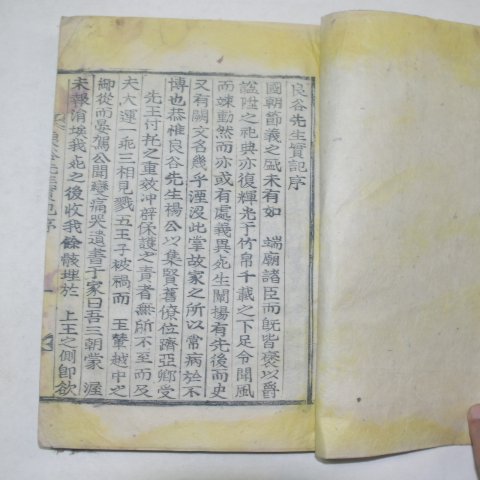 良谷先生實記序
國朝節義之盛未有如　端廟諸臣而旣皆褒以爵
謚隆之祀典亦復輝光于竹帛千載之下足令聞風
而竦動然而亦或有處義異而死生闡揚有先後而史
又有闕文名幾乎湮沒此掌故家之所以常病於不
博也恭惟良谷先生楊公以集賢舊僚位躋亞卿受
先王付托之重效冲辟保護之責者無所不至而及
夫大運一乖三相見戮五王子被禍而　玉輦越中之
御從而晏駕公聞變痛哭遺書于家曰吾三朝蒙　渥
未報涓埃我死之後收我餘骸埋於　上王之側卽欲